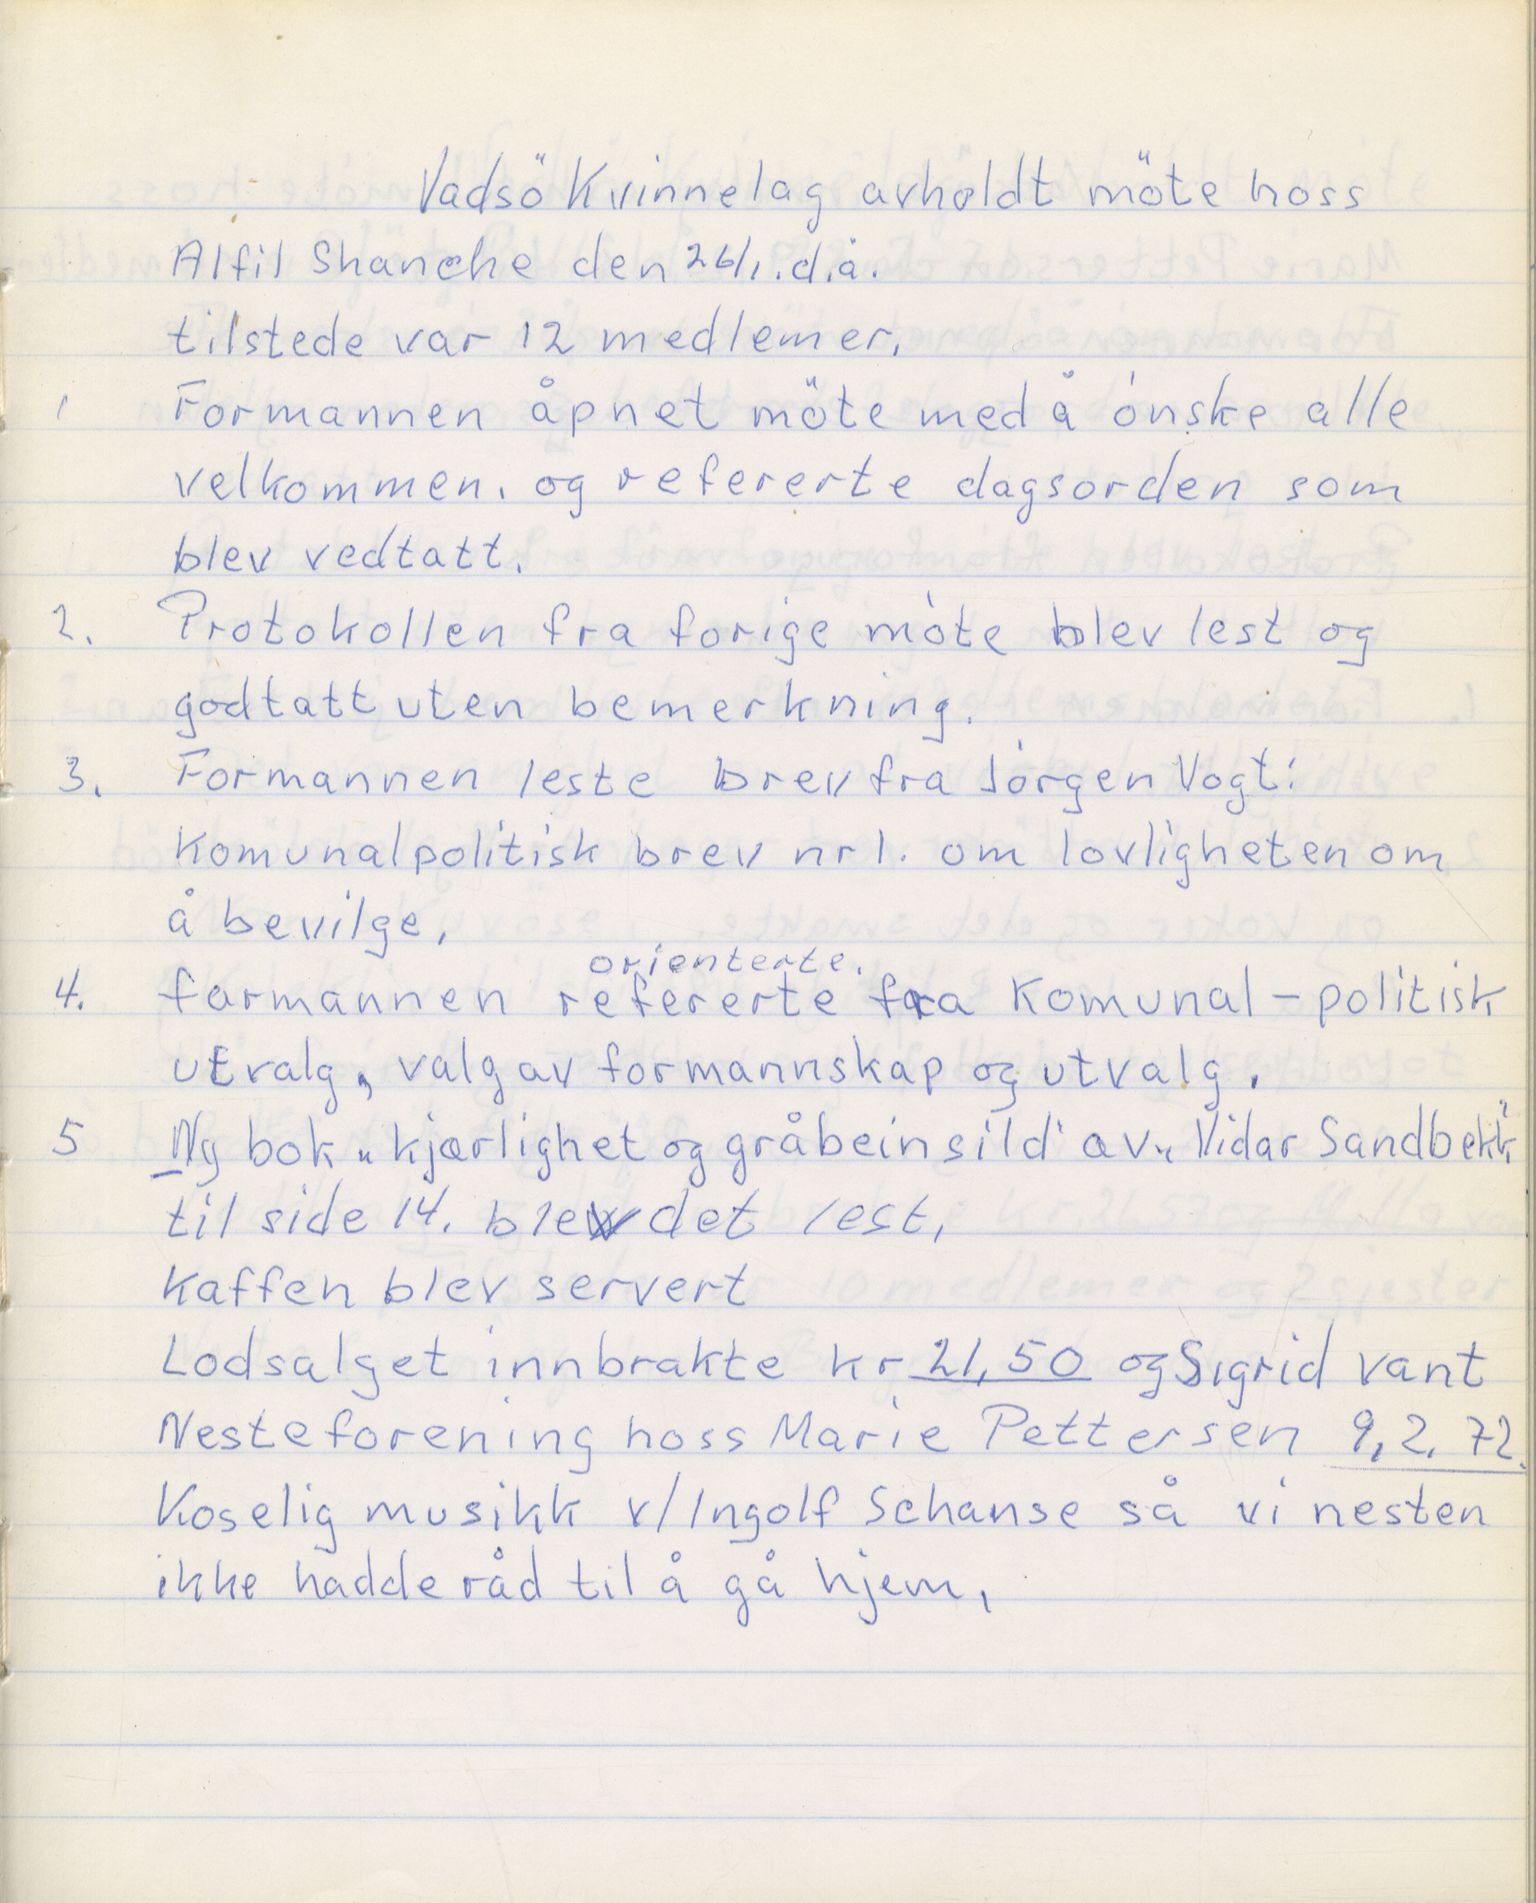 Vadsö Kvinnelag avholdt möte hoss
Alfil Shanche den 26/1. d.å.
tilstede var 12 medlemer.
1 Formannen åpnet möte med å ónske alle
velkommen. og refererte dagsorden som
blev vedtatt.
2. Protokollen fra forige móte blev lest og
godtatt uten bemerkning.
3. Formannen leste brev fra Jórgen Vogt:
Komunalpolitisk brev nr 1. om lovligheten om
å bevilge,
orienterte.
4. formannen refererte fra Komunal-politisk
utvalg, valg av formannskap og utvalg.
5 Ny bok „kjærlighet og gråbeinsild" av „Vidar Sandbekk"
til side 14. blev det lest,
Kaffen blev servert
Lodsalget innbrakte kr 21,50 og Sigrid vant
Neste forening hoss Marie Pettersen 9,2,72.
Koselig musikk v/Ingolf Schanse så vi nesten
ikke hadde råd til å gå hjem,